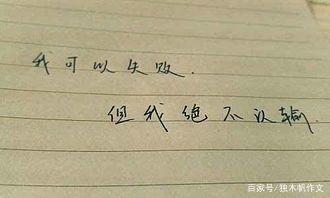 我可以失败.
但我绝不认输.
百家号/独木帆作文